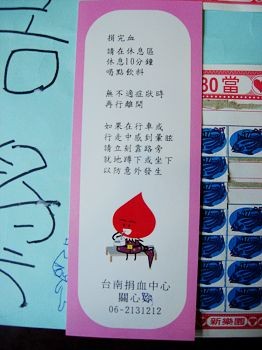 捐完血
請在休息區
休息10分鐘
喝點飲料
無不適症狀時
再行離開
如果在行車或
行走中感到暈眩
請立刻靠路旁
就地蹲下或坐下
以防意外發生
台南捐血中心
關心您
06-2131212
80當
新樂園